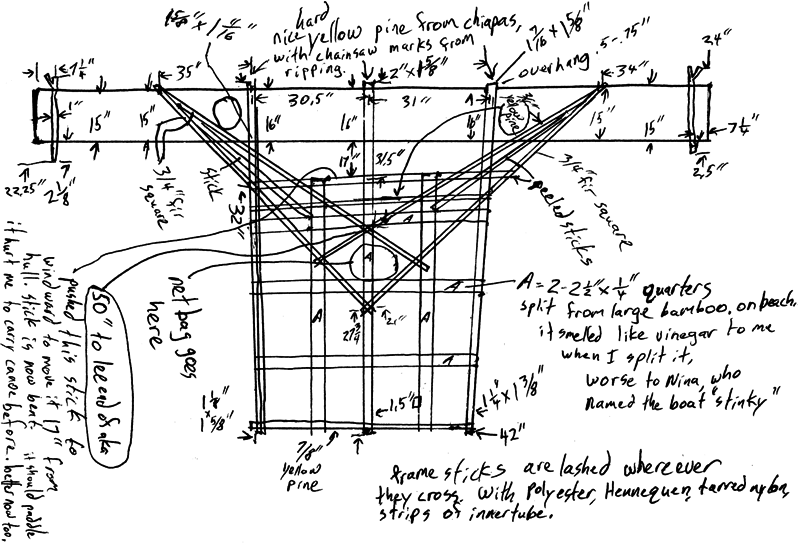 hard
nice yellow pine from chiapas,
with chainsaw marks from
ripping.
2" x 1 5/8"
7/16 x 1 5/8"
overhang .5-.75"
7 1/4"
35"
34"
2,4"
30.5"
31"
1"
15"
15"
16"
16"
16"
15"
15"
7 1/4
yellow
pine
22.25"
2 1/8"
3/4" fir
square
stick
17"
31.5"
2,5"
32"
3/4" fir square
peeled sticks
A
A
A
A
A
A
A = 2-2 1/2" x 1/4" quarters
split from large bamboo, on beach.
it smelled like vinegar to me
when I split it,
worse to Nina, who
named the boat "stinky"
net bag goes
here
27 3/4
21"
50" to lee end of aka
pushed this stick to
windward to move it 17" from
hull. stick is now bent. it should paddle
it hurt me to carry canoe before. better now too.
1 1/8"
x
1 5/8"
1,5"
1 1/4 x 1 3/8"
42"
7/8"
yellow
pine
frame sticks are lashed wherever
they cross. With Polyester, Hennequen, tarred nylon,
strips of innertube.